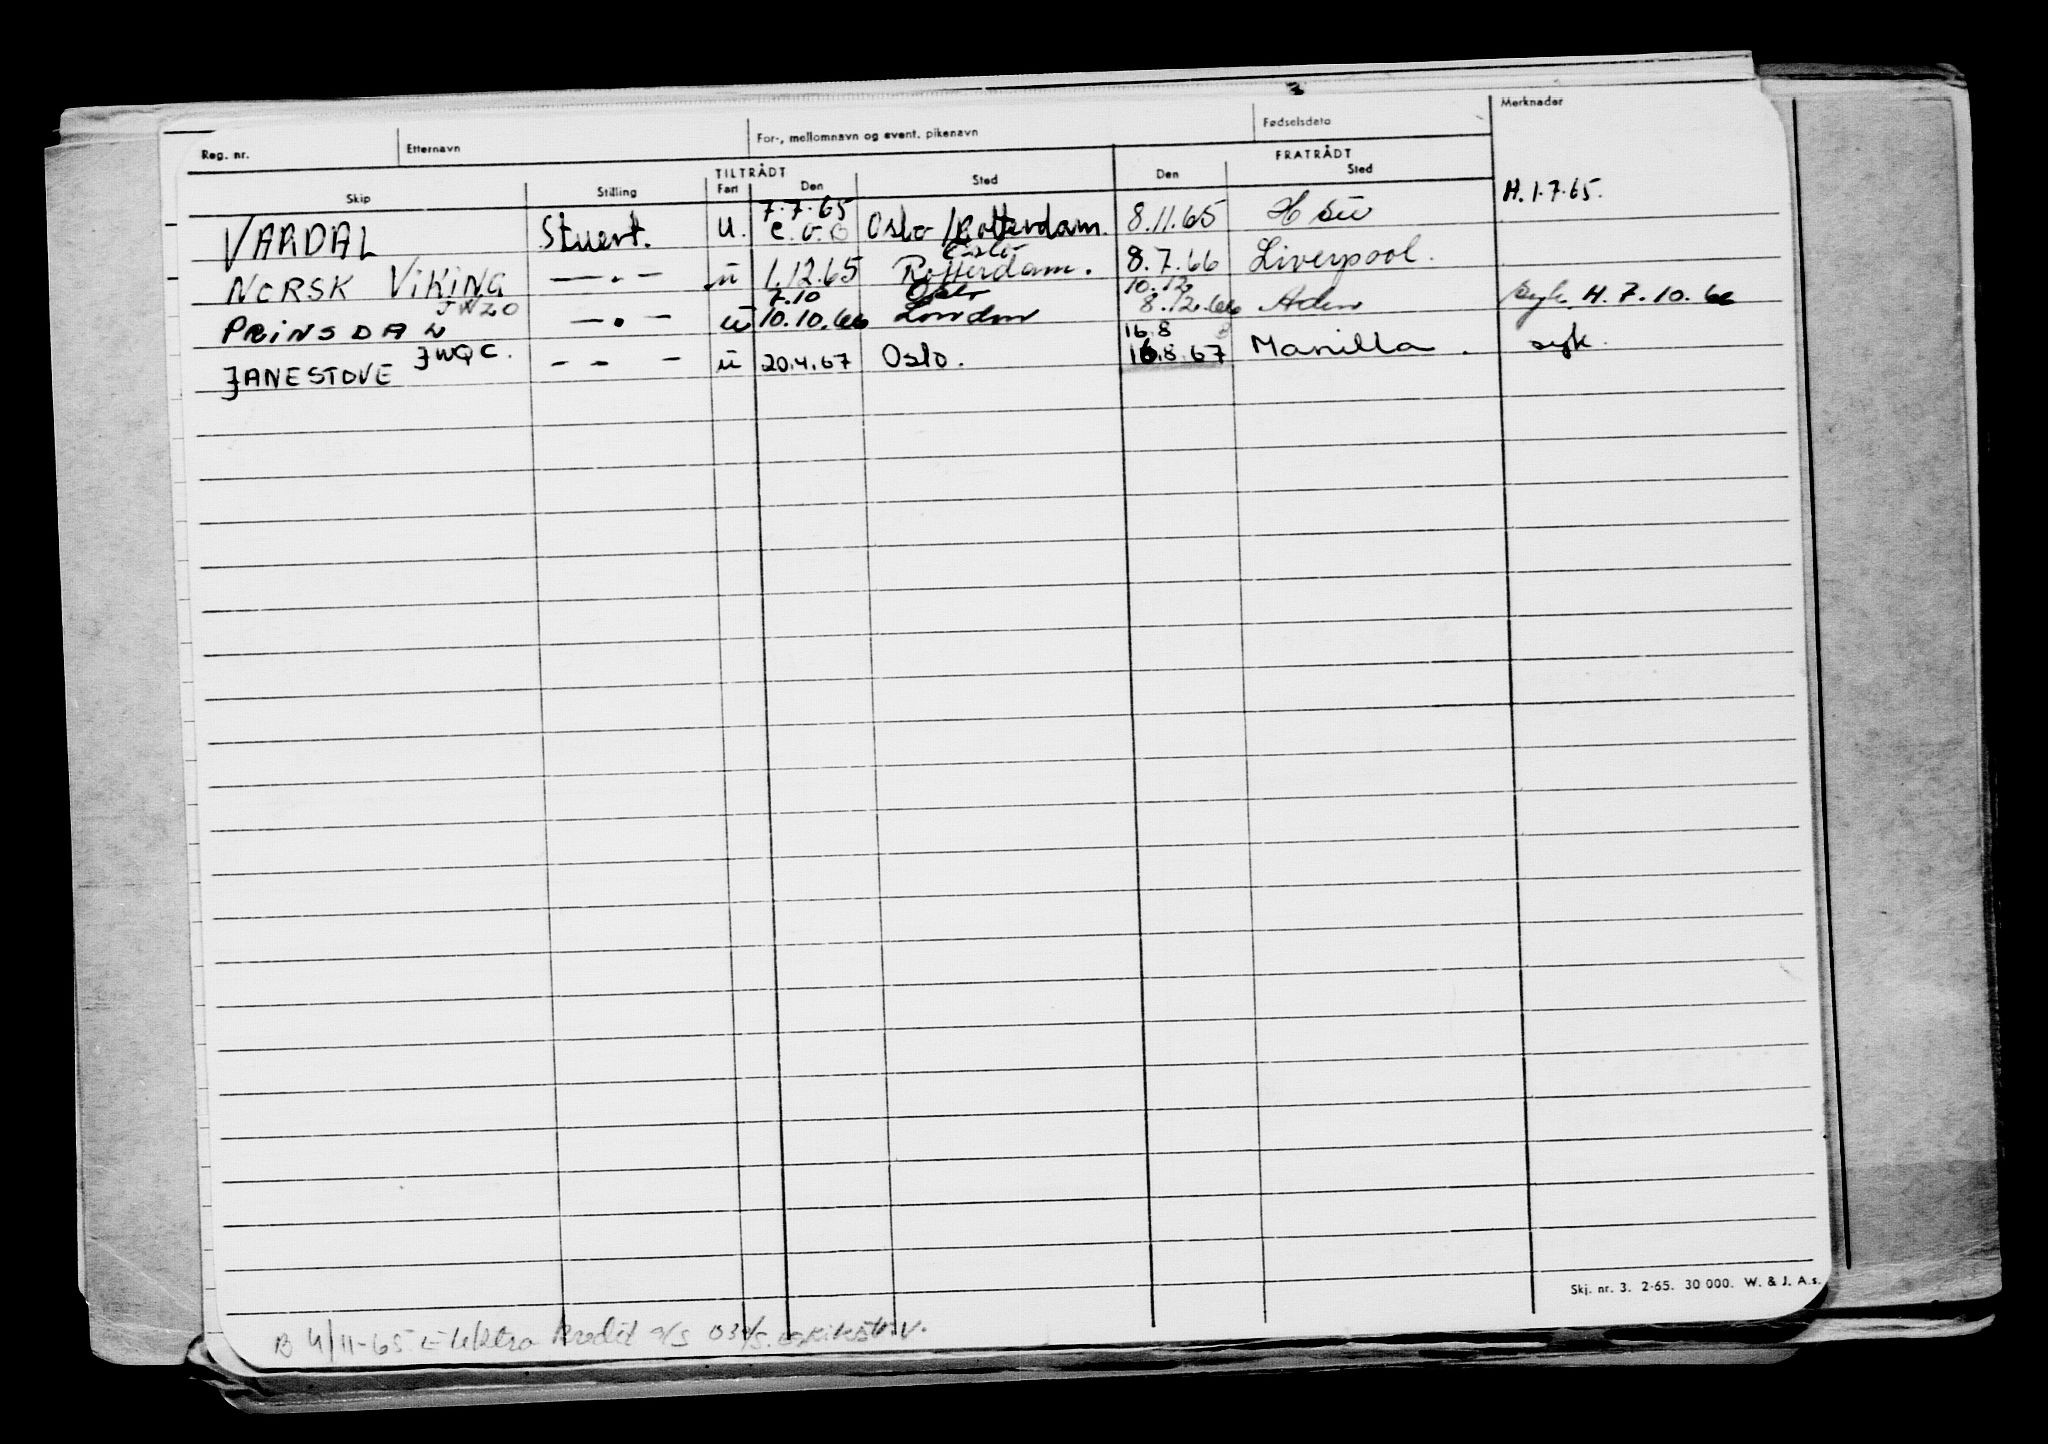 3
Reg. nr. Etternavn For-, mellomnavn og event. pikenavn Fødselsdato Merknader
TILTRÅDT FRATRÅDT
Skip Stilling Fart Den Sted Den Sted
7.7.65 H. 1.7.65.
VARDAL Stuert. u. Oslo / Rotterdam. 8.11.65
Oslo
NORSK VIKING — . — u 1.12.65 Rotterdam. 8.7.66 Liverpool.
JWZO 7.10 Oslo 10.12
PRINSDAL — . — u 10.10.66 London 8.12.66 Aden syk. H. 7.10.66
JWQC. 16.8
JANESTOVE — — — u 20.4.67 Oslo. 16.8.67 Manilla. syk.
Skj. nr. 3. 2-65. 30 000. W. & J. A.s.
B 4/11-65 Elektro Kredit a/s